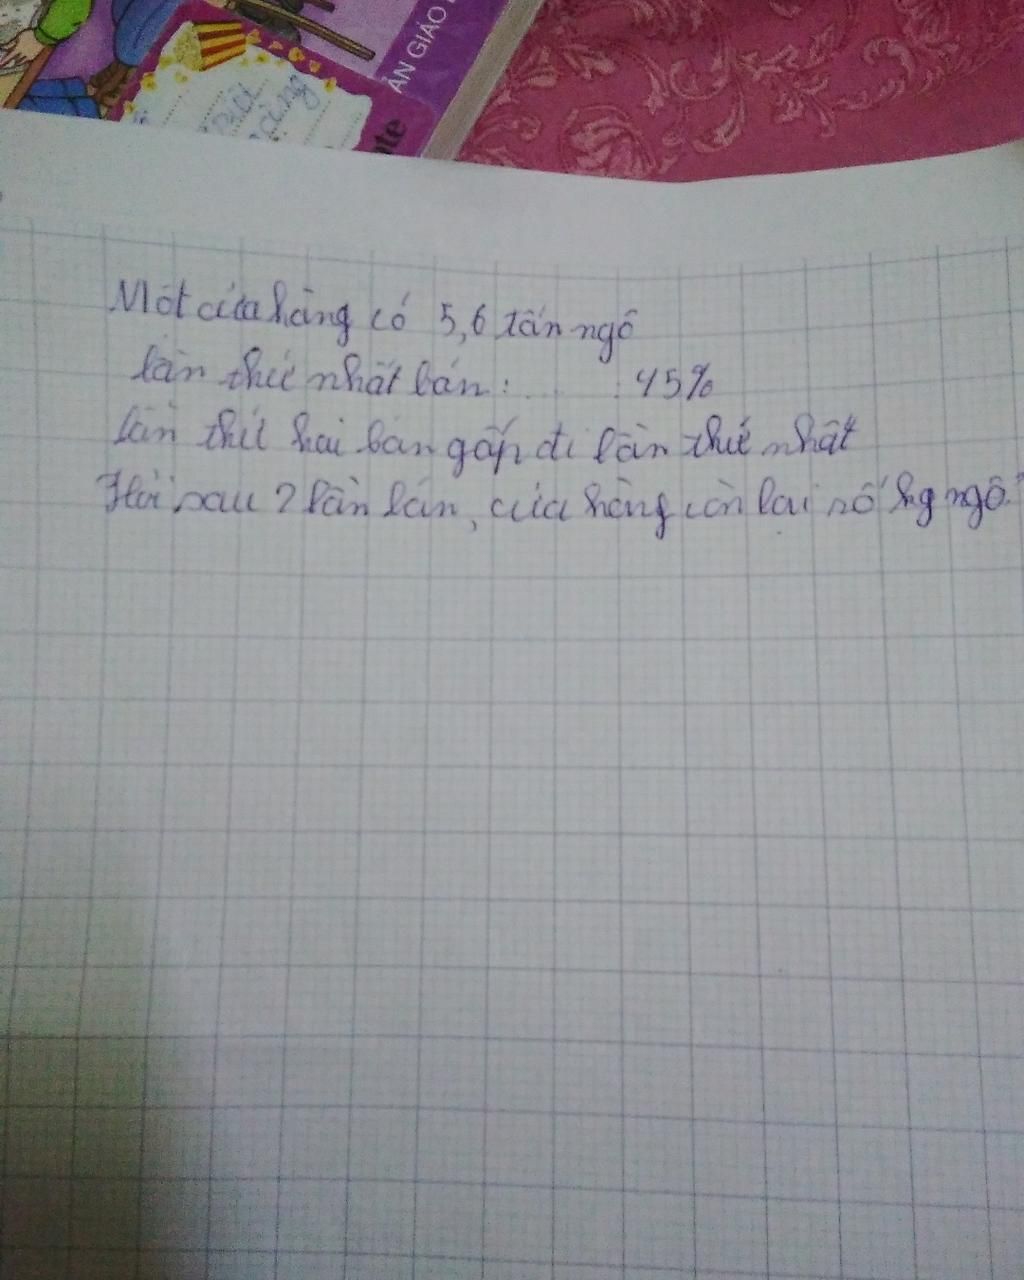 ÂN GIÁO
nte
Một cửa hàng có 5,6 tấn ngô
lần thứ nhất bán : ..... : 45%
lần thứ hai bán gấp đi lần thứ nhất
Hỏi sau 2 lần bán, cửa hàng còn lại số kg ngô?